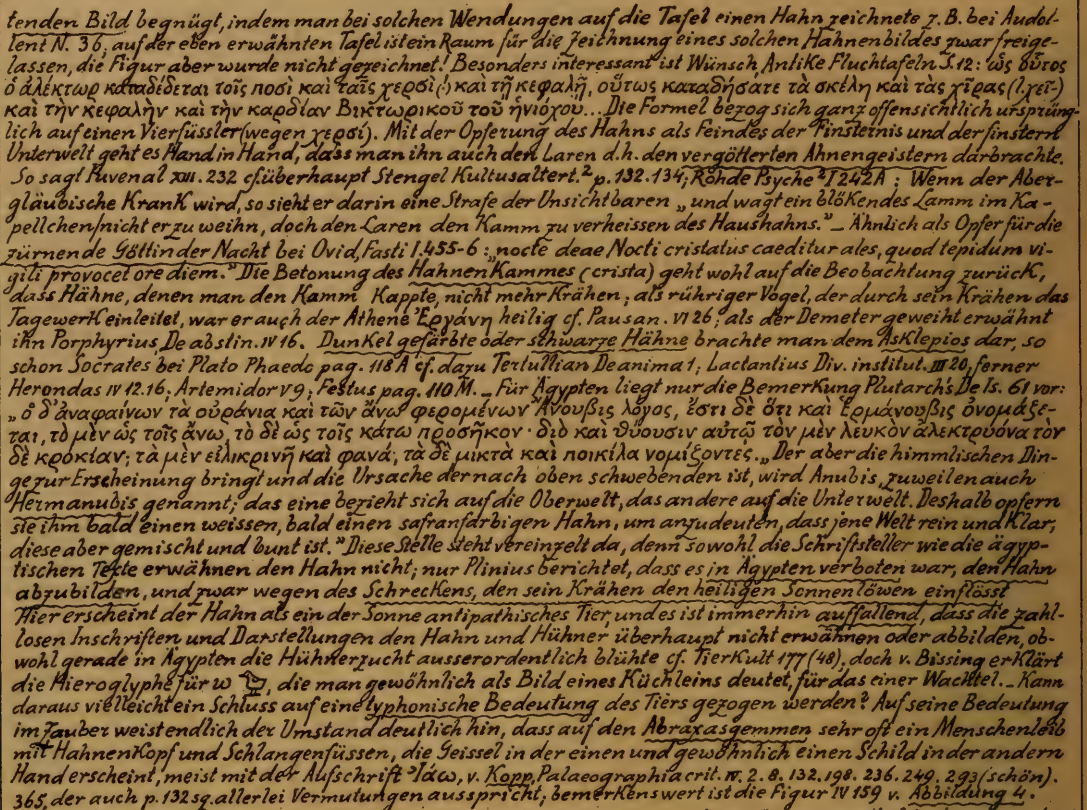 tenden Bild begnügt, indem man bei solchen Wendungen auf die Tafel einen Hahn zeichnete z. B. bei Audol-
lent N. 36, auf der eben erwähnten Tafel ist ein Raum für die Zeichnung eines solchen Hahnenbildes zwar freige-
lassen, die Figur aber wurde nicht gezeichnet! Besonders interessant ist Wünsch, Antike Fluchtafeln S. 12: ὡς οὗτος
ὁ ἀλέκτωρ καταδέδεται τοῖς ποσὶ καὶ ταῖς χερσὶ (!) καὶ τῇ κεφαλῇ, οὕτως καταδήσατε τὰ σκέλη καὶ τὰς χῖρας (l. χεῖ-)
καὶ τὴν κεφαλὴν καὶ τὴν καρδίαν Βικτωρικοῦ τοῦ ἡνιόχου... Die Formel bezog sich ganz offensichtlich ursprüng-
lich auf einen Vierfüssler (wegen χερσί). Mit der Opferung des Hahns als Feindes der Finsternis und der finstern
Unterwelt geht es Hand in Hand, dass man ihn auch den Laren d.h. den vergötterten Ahnengeistern darbrachte.
So sagt Juvenal XIII. 232 cf. überhaupt Stengel Kultusaltert.² p. 132. 134; Rohde Psyche² I 242 A : Wenn der Aber-
gläubische krank wird, so sieht er darin eine Strafe der Unsichtbaren „und wagt ein blökendes Lamm im Ka-
pellchen/nicht er zu weihn, doch den Laren den Kamm zu verheissen des Haushahns." – Ähnlich als Opfer für die
zürnende Göttin der Nacht bei Ovid, Fasti I. 455-6 : „nocte deae Nocti cristatus caeditur ales, quod tepidum vi-
gili provocet ore diem." Die Betonung des Hahnenkammes (crista) geht wohl auf die Beobachtung zurück,
dass Hähne, denen man den Kamm kappte, nicht mehr krähen; als rühriger Vogel, der durch sein Krähen das
Tagewerk einleitet, war er auch der Athene Ἐργάνη heilig cf. Pausan. VI 26; als der Demeter geweiht erwähnt
ihn Porphyrius, De abstin. IV 16. Dunkel gefärbte oder schwarze Hähne brachte man dem Asklepios dar, so
schon Socrates bei Plato Phaedo pag. 118 A cf. dazu Tertullian De anima 1; Lactantius Div. institut. III 20, ferner
Herondas IV 12. 16; Artemidor V 9; Festus pag. 110 M. – Für Ägypten liegt nur die Bemerkung Plutarch's De Is. 61 vor:
„ὁ δ'ἀναφαίνων τὰ οὐράνια καὶ τῶν ἄνω φερομένων Ἄνουβις λόγος, ἔστι δὲ ὅτι καὶ Ἑρμάνουβις ὀνομάζε-
ται, τὸ μὲν ὡς τοῖς ἄνω, τὸ δὲ ὡς τοῖς κάτω προσῆκον· διὸ καὶ θύουσιν αὐτῷ τὸν μὲν λευκὸν ἀλεκτρυόνα τὸν
δὲ κρόκιαν; τὰ μὲν εἰλικρινῆ καὶ φανά, τὰ δὲ μικτὰ καὶ ποικίλα νομίζοντες. „Der aber die himmlischen Din-
ge zur Erscheinung bringt und die Ursache der nach oben schwebenden ist, wird Anubis, zuweilen auch
Hermanubis genannt; das eine bezieht sich auf die Oberwelt, das andere auf die Unterwelt. Deshalb opfern
sie ihm bald einen weissen, bald einen safranfarbigen Hahn, um anzudeuten, dass jene Welt rein und klar,
diese aber gemischt und bunt ist." Diese Stelle steht vereinzelt da, denn sowohl die Schriftsteller wie die ägyp-
tischen Texte erwähnen den Hahn nicht; nur Plinius berichtet, dass es in Ägypten verboten war, den Hahn
abzubilden, und zwar wegen des Schreckens, den sein Krähen den heiligen Sonnenlöwen einflösst
Hier erscheint der Hahn als ein der Sonne antipathisches Tier, und es ist immerhin auffallend, dass die zahl-
losen Inschriften und Darstellungen den Hahn und Hühner überhaupt nicht erwähnen oder abbilden, ob-
wohl gerade in Ägypten die Hühnerzucht ausserordentlich blühte cf. Tierkult 177 (48), doch v. Bissing erklärt
die Hieroglyphe für w 𓅱, die man gewöhnlich als Bild eines Küchleins deutet, für das einer Wachtel. – Kann
daraus vielleicht ein Schluss auf eine typhonische Bedeutung des Tiers gezogen werden? Auf seine Bedeutung
im Zauber weist endlich der Umstand deutlich hin, dass auf den Abraxasgemmen sehr oft ein Menschenleib
mit Hahnenkopf und Schlangenfüssen, die Geissel in der einen und gewöhnlich einen Schild in der andern
Hand erscheint, meist mit der Aufschrift Ἰάω, v. Kopp, Palaeographia crit. IV. 2. 8. 132. 198. 236. 249. 293 (schön).
365, der auch p. 132 sq. allerlei Vermutungen ausspricht; bemerkenswert ist die Figur IV 159 v. Abbildung 4.